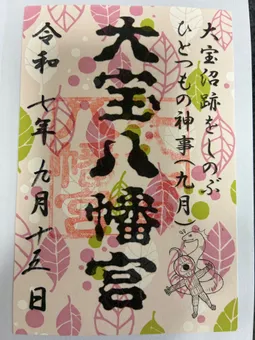 大宝沼跡をしのぶ
ひとつもの神事(九月)
大宝八幡宮
令和七年九月十五日